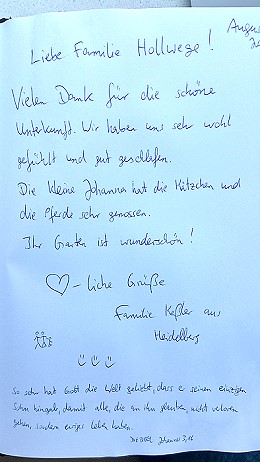 August
Liebe Familie Hollwege!
Vielen Dank für die schöne
Unterkunft. Wir haben uns sehr wohl
gefühlt und gut geschlafen.
Die kleine Johanna hat die Kätzchen und
die Pferde sehr genossen.
Ihr Garten ist wunderschön!
♡-liche Grüße
Familie Keßler aus
Heidelberg
So sehr hat Gott die Welt geliebt, dass er seinen einzigen
Sohn hingab, damit alle, die an ihn glauben, nicht verloren
gehen, sondern ewiges Leben haben.
Die Bibel, Johannes 3,16